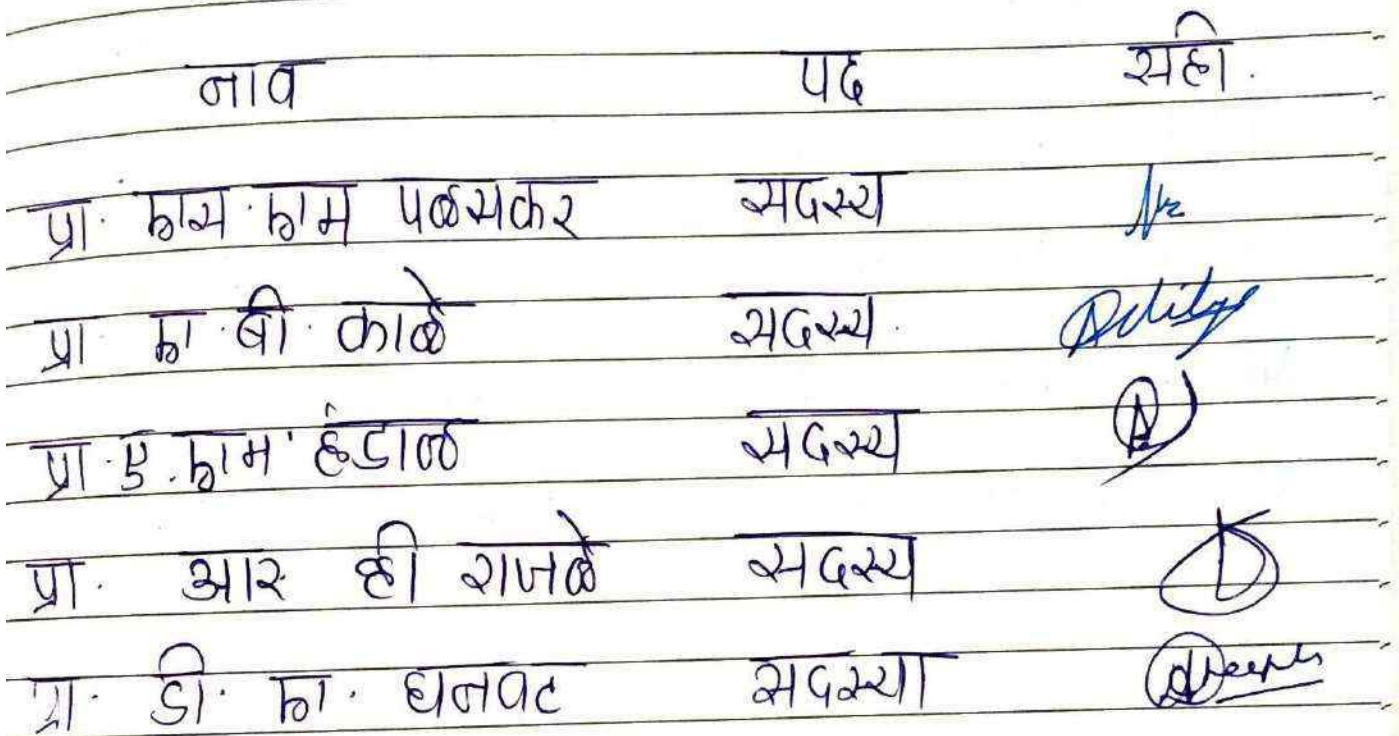 नाव पद सही.
प्रा. एस. एम पळसकर सदस्य
प्रा ए. बी. काळे सदस्य.
प्रा. ए. एम. हंडाळ सदस्य
प्रा. आर ही राजळे सदस्य
प्रा. डी. ए. घनवट सदस्या